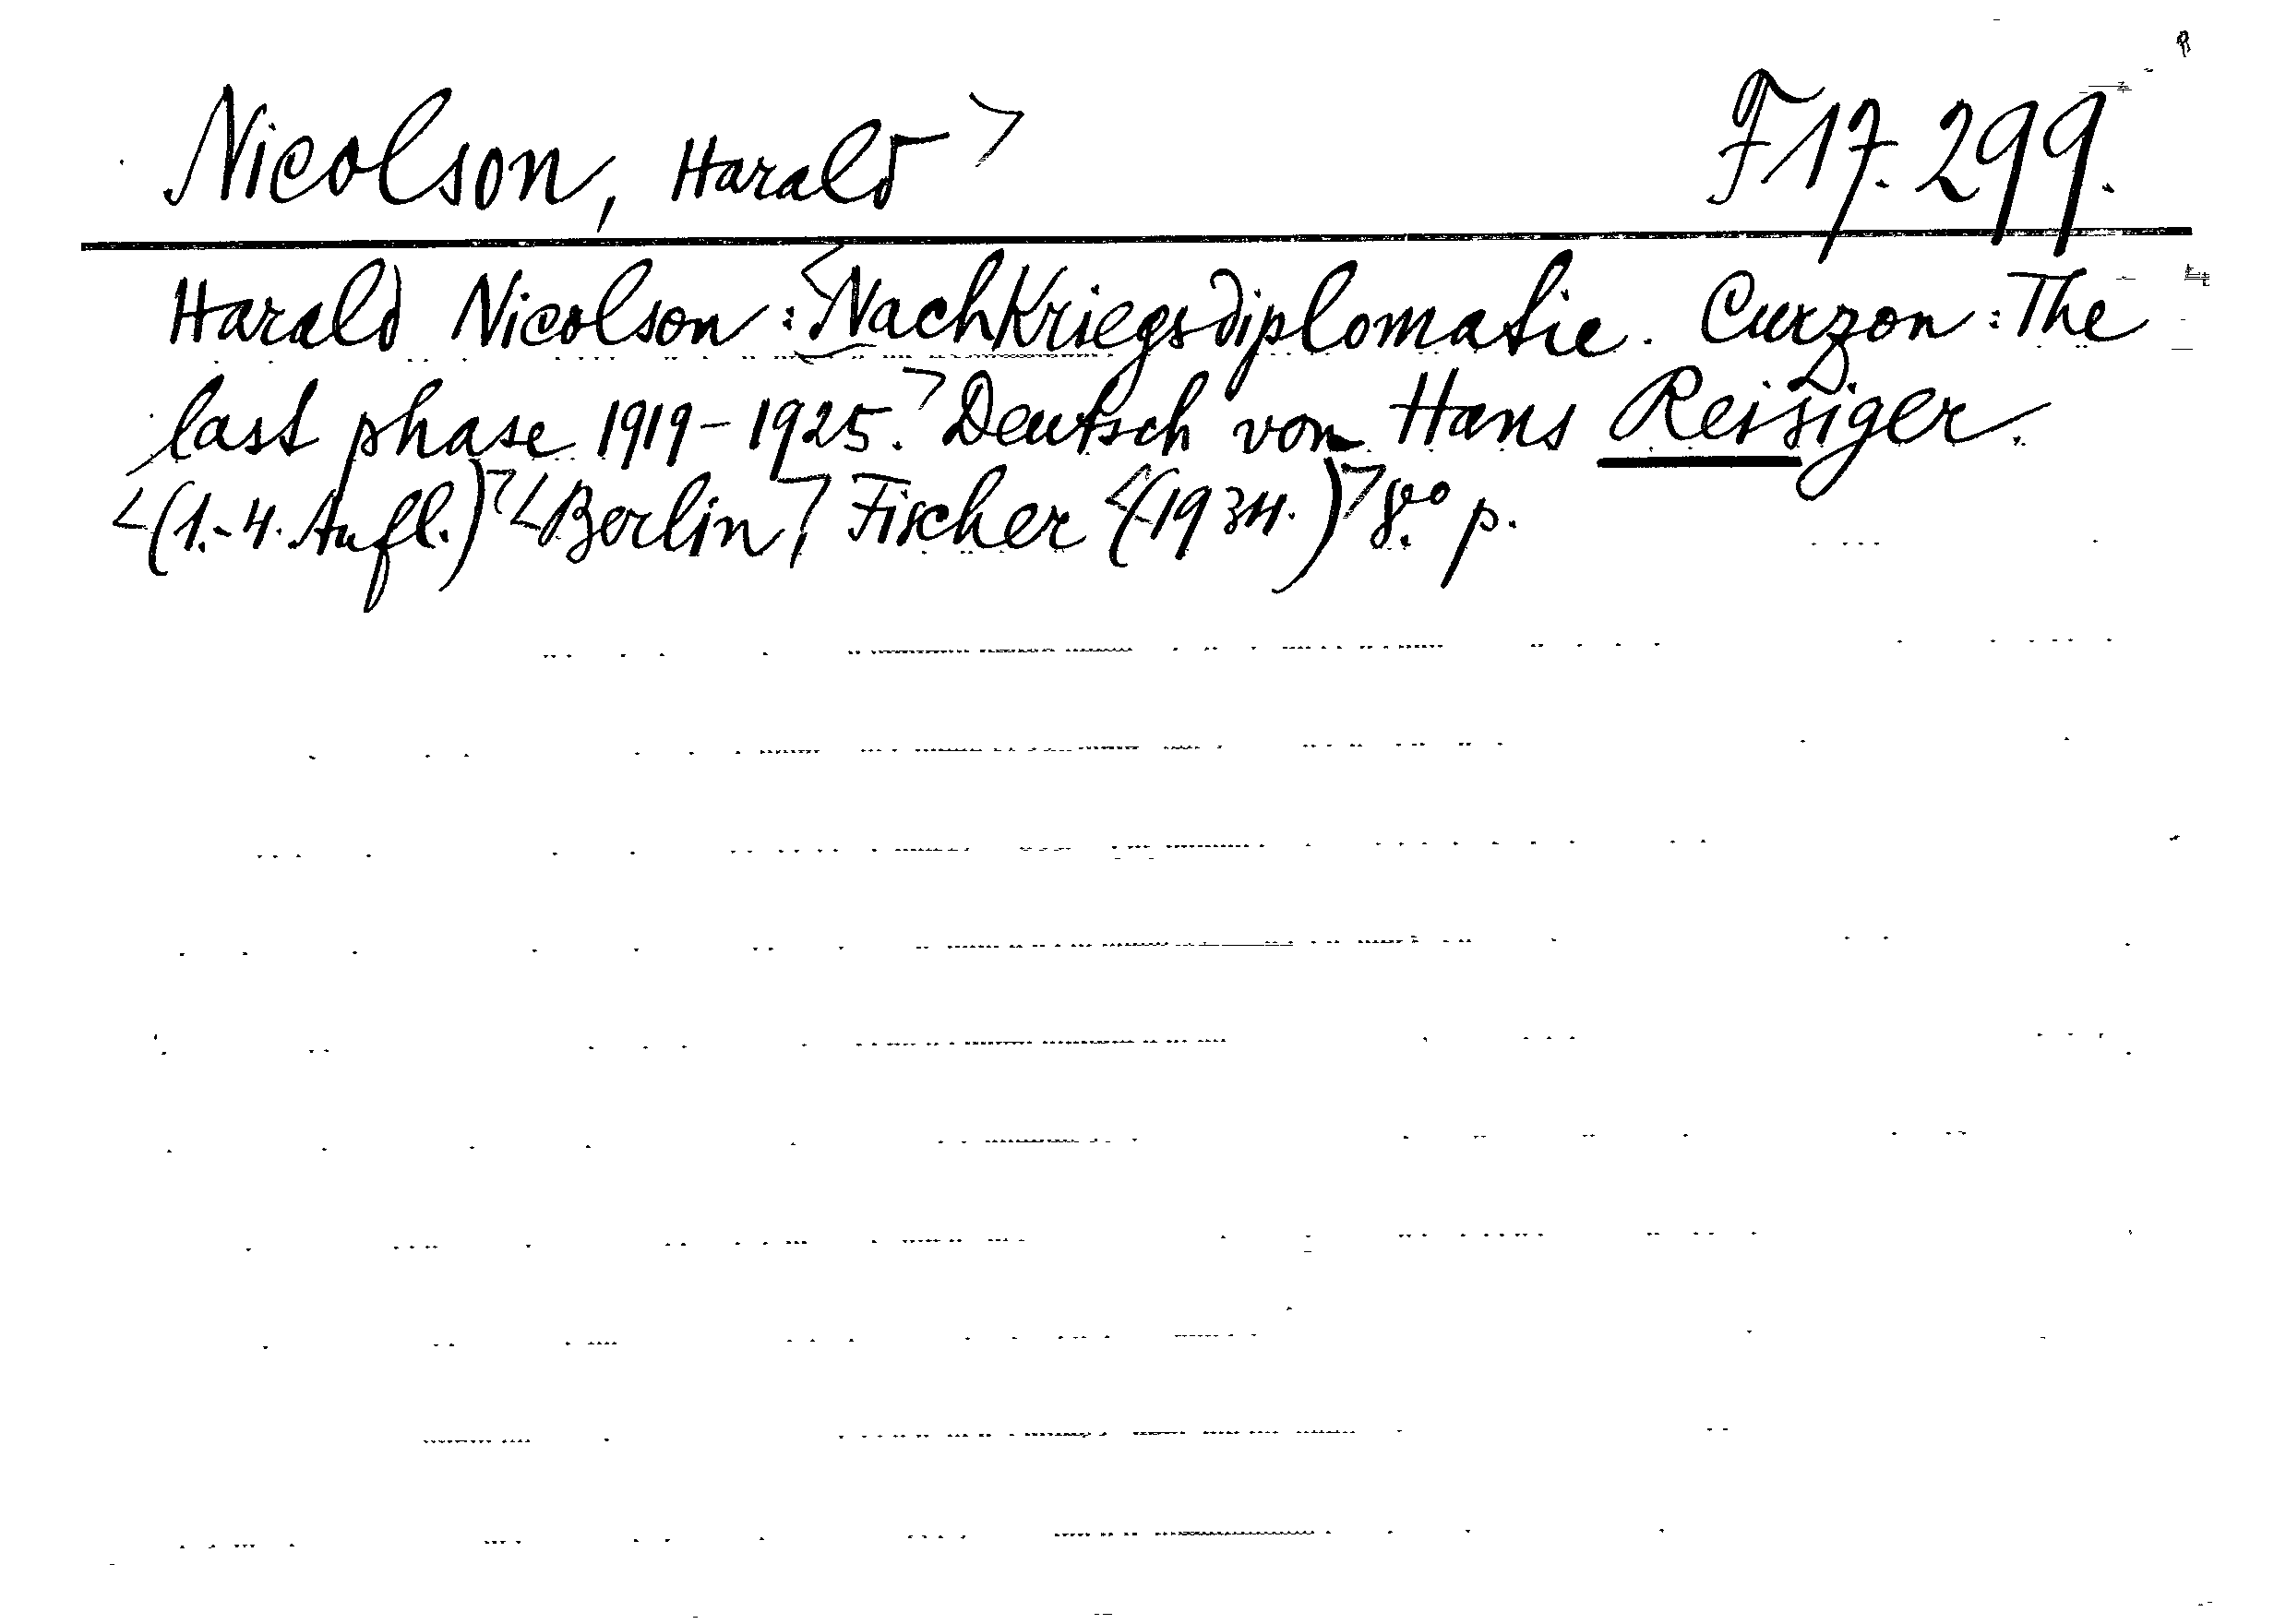 Nicolson, Harald> F17.299.
Harald Nicolson: <Nachkriegsdiplomatie. Curzon: The
last phase 1919-1925.> Deutsch von Hans Reisiger.
<(1.-4. Aufl.)> <Berlin,> Fischer <(1934.)> 8.° p.